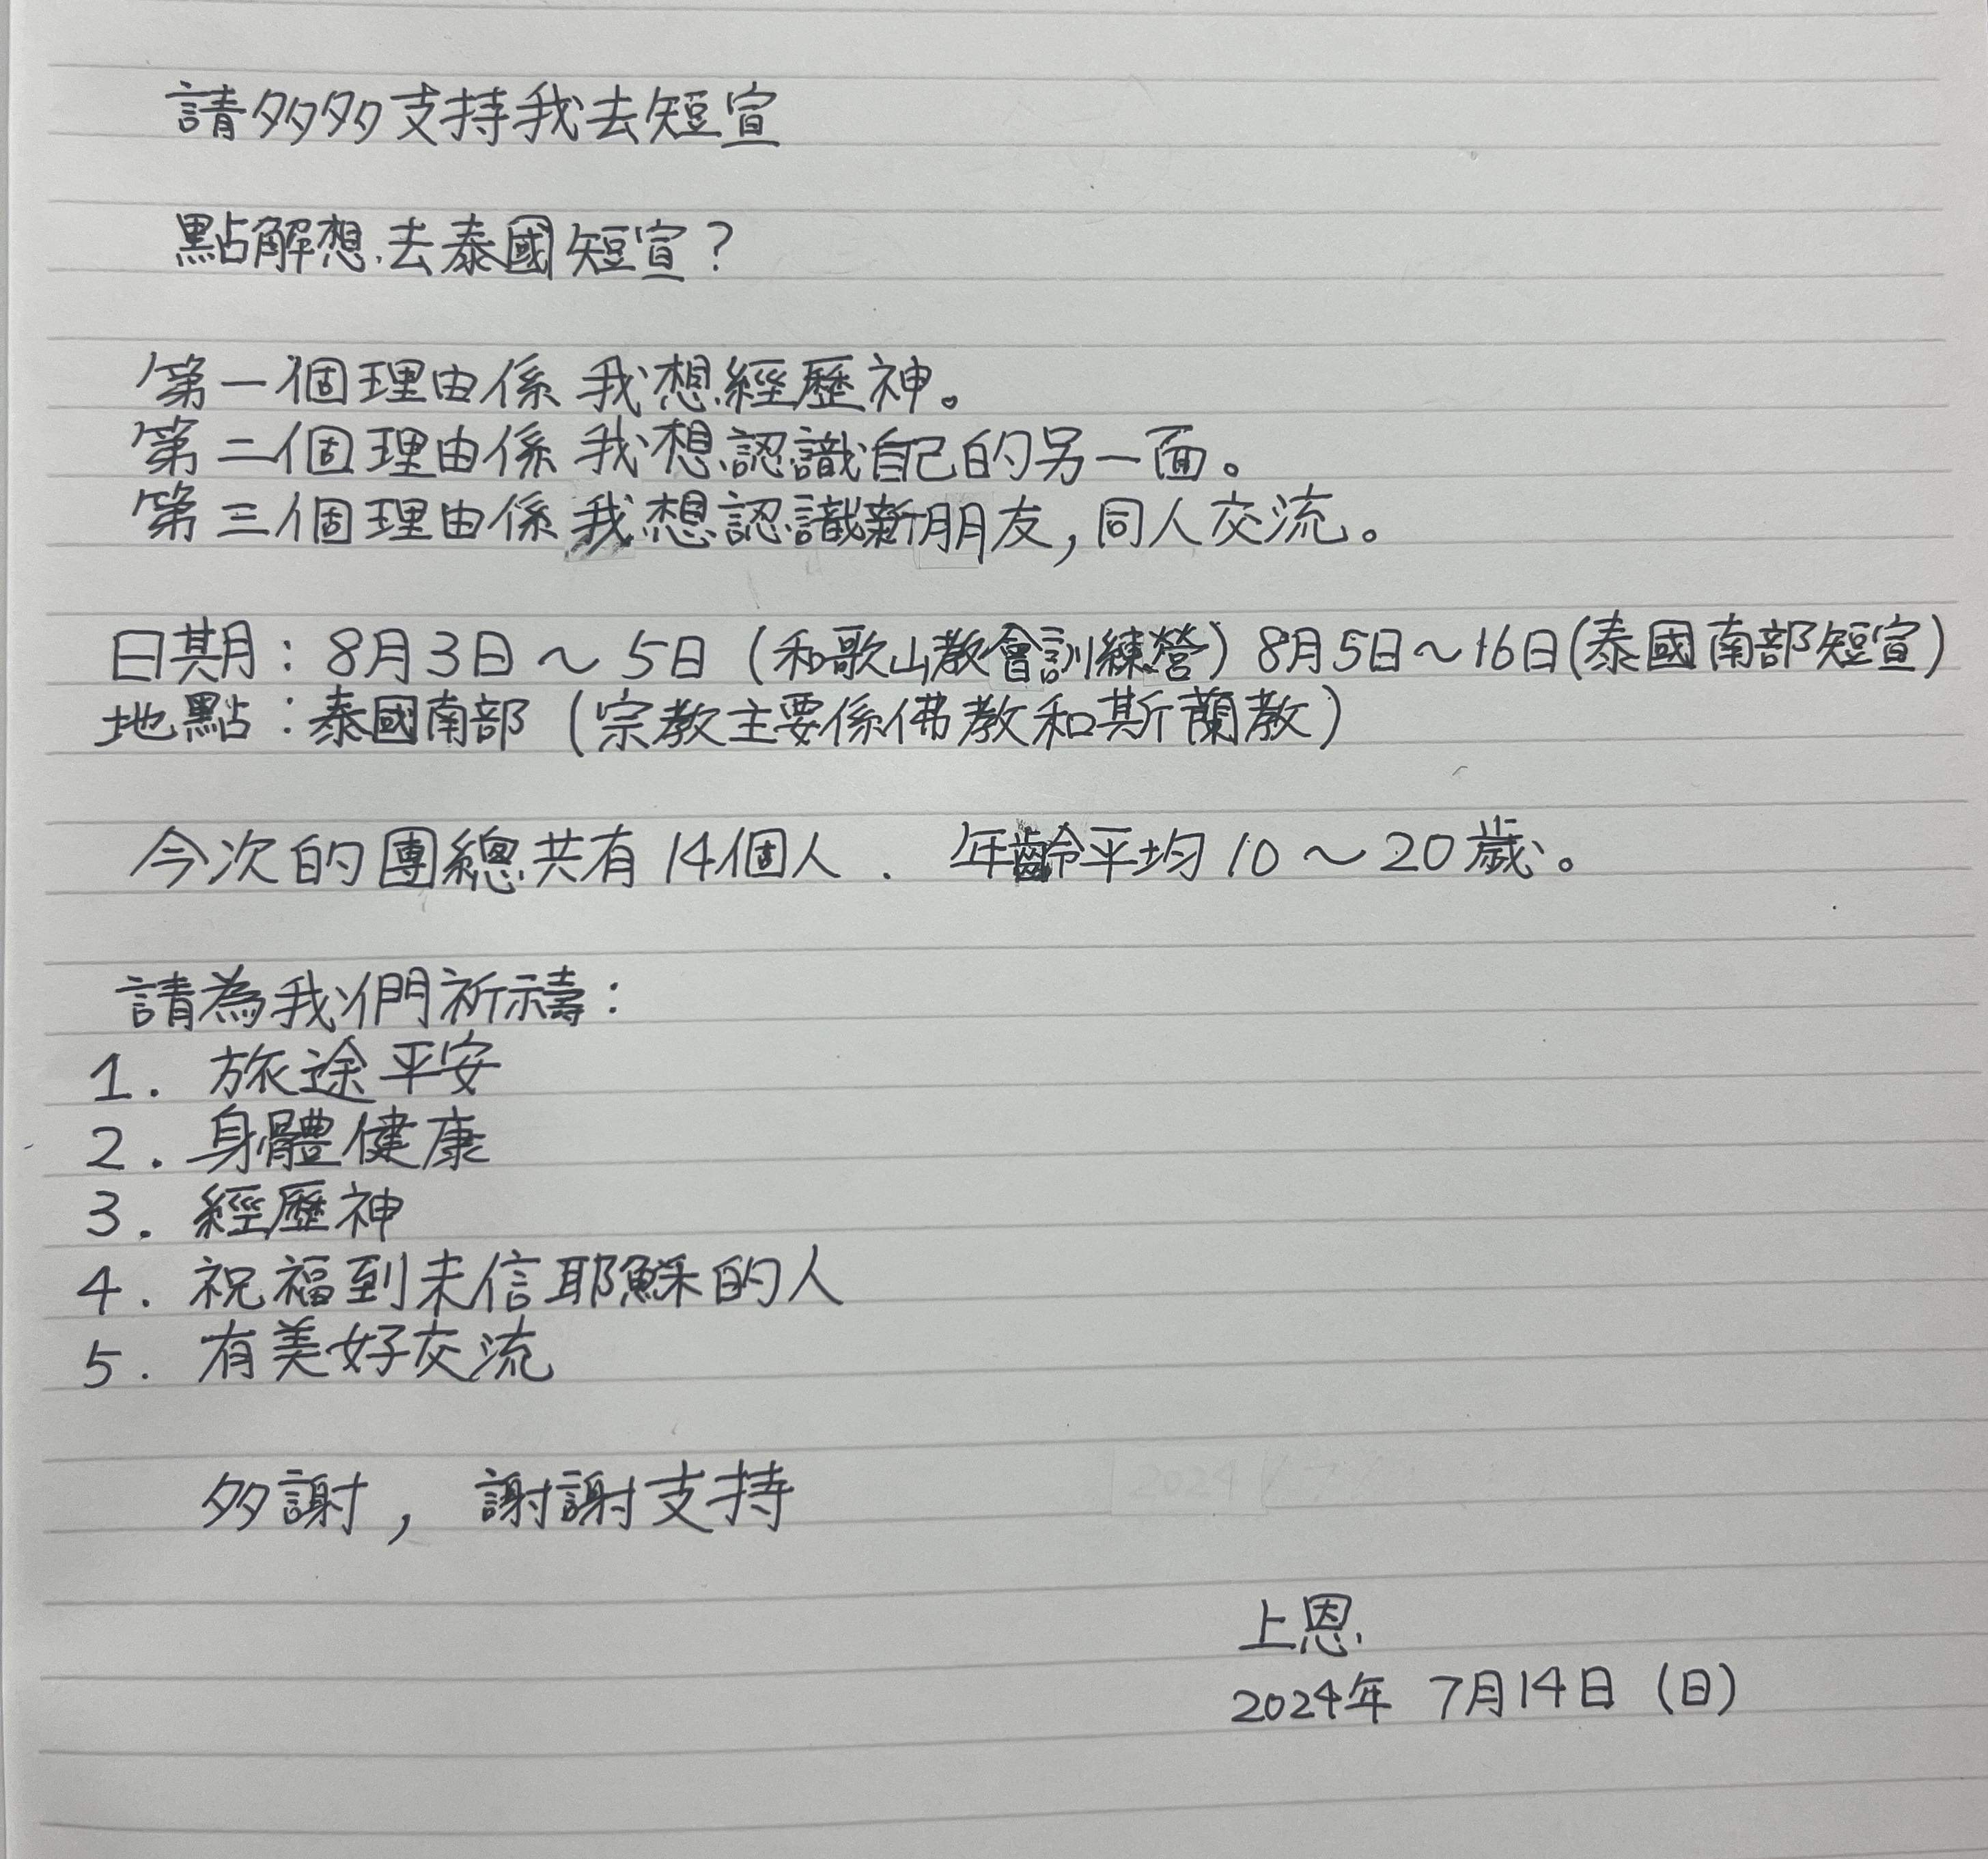 請多多支持我去短宣
點解想去泰國短宣？
第一個理由係我想經歷神。
第二個理由係我想認識自己的另一面。
第三個理由係我想認識新朋友，同人交流。
日期：8月3日～5日（和歌山教會訓練營）8月5日～16日（泰國南部短宣）
地點：泰國南部（宗教主要係佛教和斯蘭教）
今次的團總共有14個人．年齡平均10～20歲。
請為我們祈禱：
1. 旅途平安
2. 身體健康
3. 經歷神
4. 祝福到未信耶穌的人
5. 有美好交流
多謝，謝謝支持
上恩
2024年 7月14日（日）